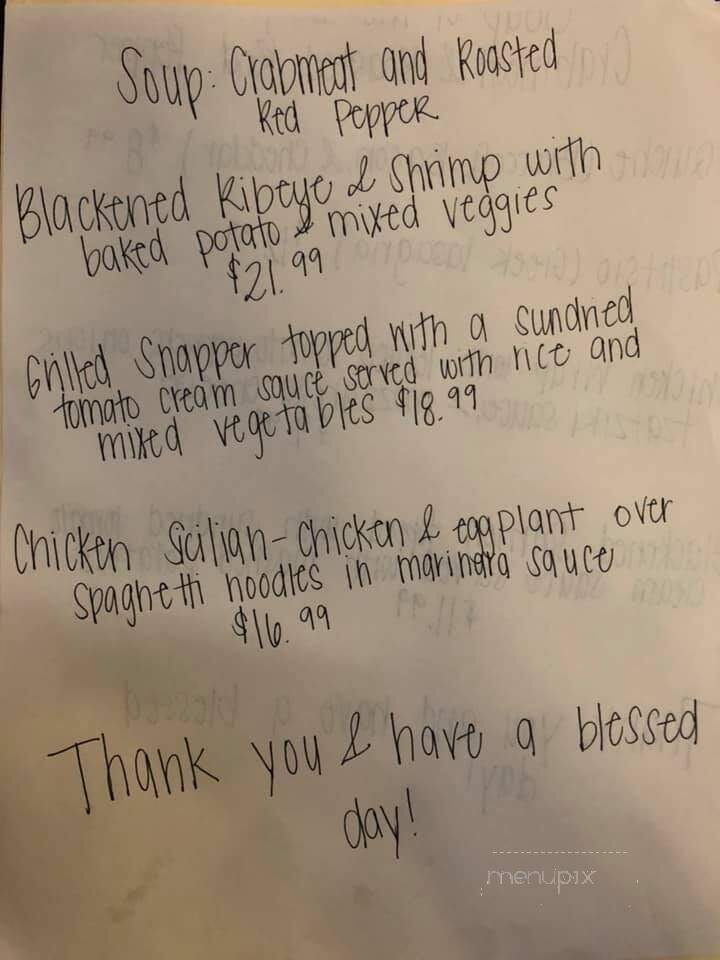 Soup: Crabmeat and Roasted
Red Pepper
Blackened Ribeye & Shrimp with
baked potato & mixed veggies
$21.99
Grilled Snapper topped with a sundried
tomato cream sauce served with rice and
mixed vegetables $18.99
Chicken Scilian-chicken & eggplant over
spaghetti noodles in marinara sauce
$16.99
Thank you & have a blessed
day!
menupix